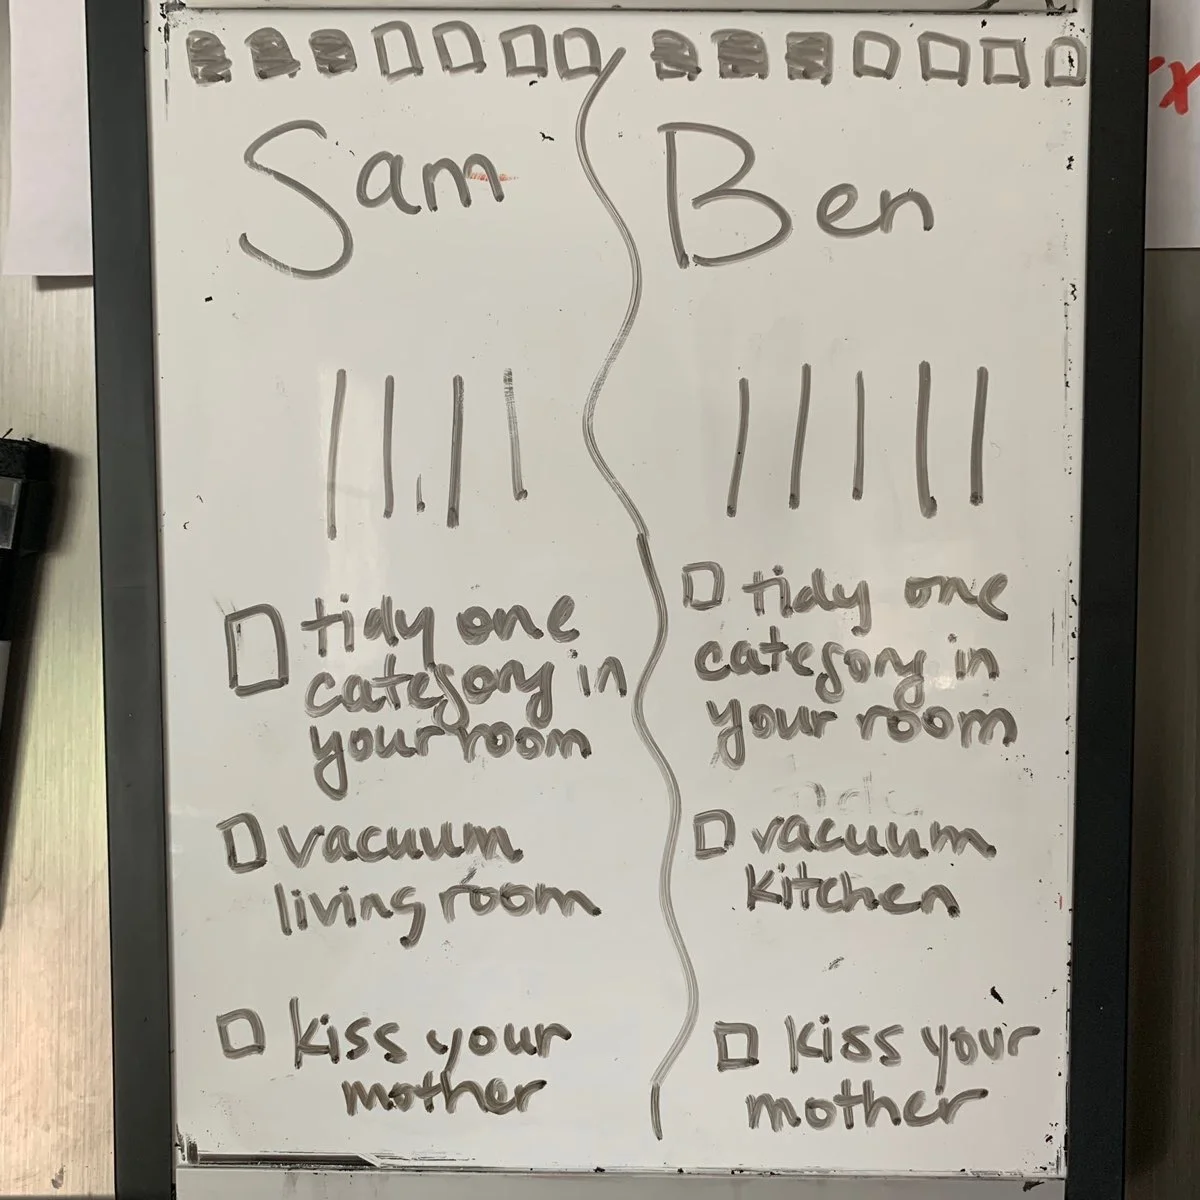 Sam
tidy one
category in
your room
vacuum
living room
kiss your
mother
Ben
tidy one
category in
your room
vacuum
kitchen
kiss your
mother